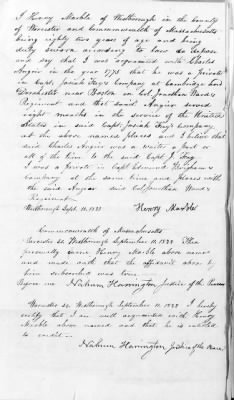 I Henry Marble of Westborough in the County
of Worcester and Commonwealth of Massachusetts
being eighty two years of age and being
duly sworn according to law do depose
and say that I was acquainted with Charles
Angier in the year 1775 that he was a private
in Capt. Josiah Fay's Company at Cambridge and
Dorchester near Boston in Col. Jonathan Ward's
Regiment and that said Angier served
eight months in the service of the United
States in said Capt. Josiah Fay's Company
at the above named places and I believe that
said Charles Angier was a waiter a part or
all of the time to the said Capt. J. Fay
I was a private in Capt Edmund Brigham's
Company at the same time and places with
the said Angier said Col. Jonathan Ward's
Regiment.
Westborough Sept. 11, 1832 Henry Marble
Commonwealth of Massachusetts
Worcester ss. Westborough September 11, 1832 Then
personally came Henry Marble above named
and made oath that the affidavit above by
him subscribed was true.
Before me Nahum Harrington Justice of the Peace
Worcester ss. Westborough September 11, 1832 I hereby
certify that I am well acquainted with Henry
Marble above named and that he is entitled
to credit
Nahum Harrington Justice of the Peace.